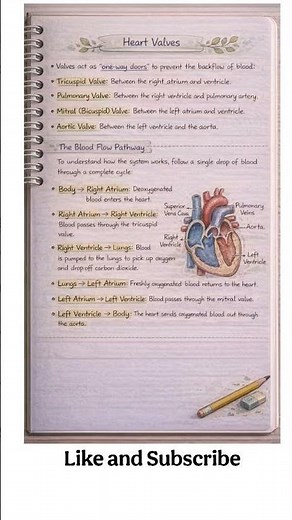 Heart Valves
• Valves act as "one-way doors" to prevent the backflow of blood:
• Tricuspid Valve: Between the right atrium and ventricle.
• Pulmonary Valve: Between the right ventricle and pulmonary artery.
• Mitral (Bicuspid) Valve: Between the left atrium and ventricle.
• Aortic Valve: Between the left ventricle and the aorta.
The Blood Flow Pathway
To understand how the system works, follow a single drop of blood
through a complete cycle:
• Body → Right Atrium: Deoxygenated
blood enters the heart.
• Right Atrium → Right Ventricle:
Blood passes through the tricuspid
valve.
• Right Ventricle → Lungs: Blood
is pumped to the lungs to pick up oxygen
and drop off carbon dioxide.
Superior
Vena Cava
Pulmonary
Veins
Aorta
Right
Ventricle
Left
Ventricle
• Lungs → Left Atrium: Freshly oxygenated blood returns to the heart.
• Left Atrium → Left Ventricle: Blood passes through the mitral valve.
• Left Ventricle → Body: The heart sends oxygenated blood out through
the aorta.
Like and Subscribe